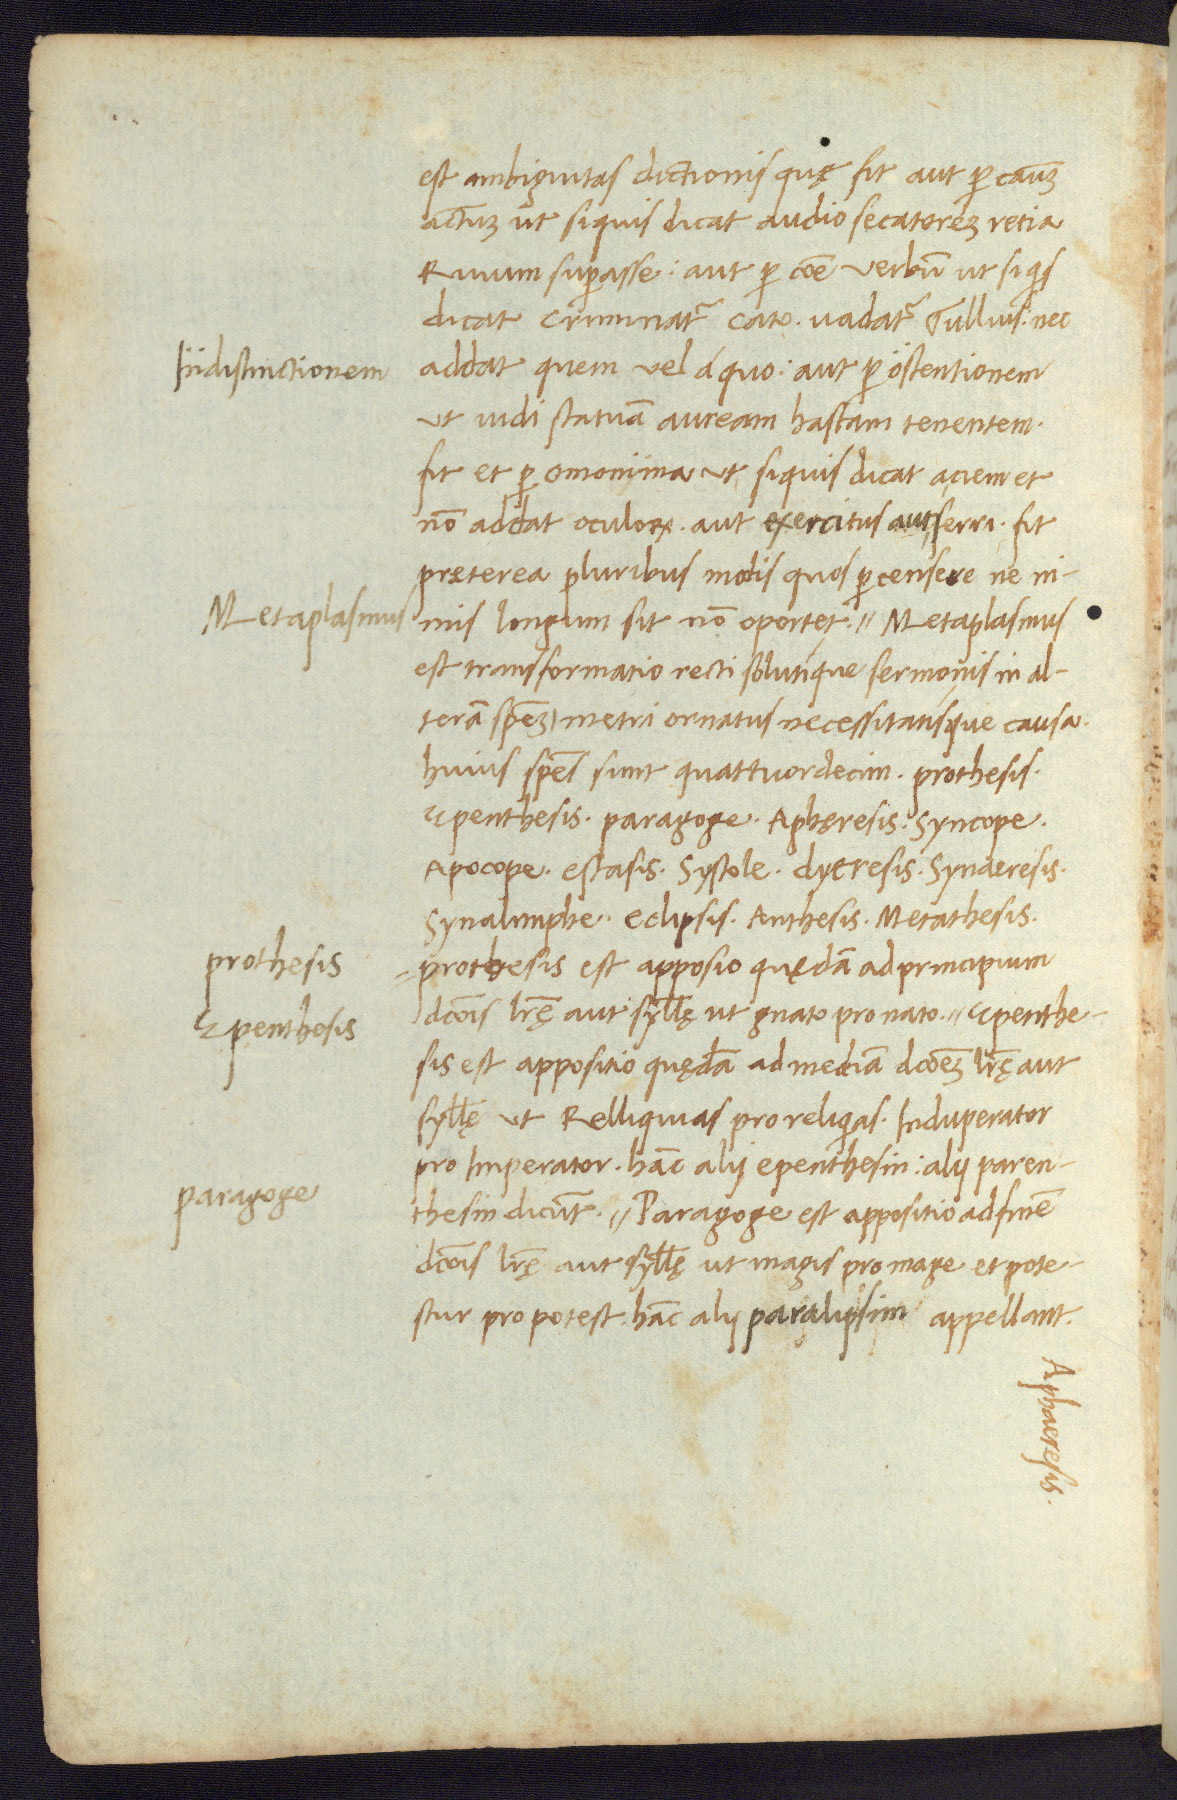 est ambiguitas dictionis quę fit aut ꝑ cauꝫ
actuꝫ ut siquis dicat audio secatoreꝫ retia
Ruuum suꝑasse: aut ꝑ cōe verbū ut siqis
dicat criminatᷣ cato. uadatᷣ Tullius. nec
Indistinctionem
addat quem vel á quo: aut ꝑ ostentionem
ut uidi statuā auream hastam tenentem.
fit et ꝑ omonima ut siquis dicat aciem et
nō addat oculoꝝ. aut exercitus aut ferri. fit
pręterea pluribus modis quos ꝑcensere ne ni-
Metaplasmus
mis longum sit nō oportet. // Metaplasmus
est transformatio recti solutique sermonis in al-
terā spēꝫ metri ornatus necessitatisque causa.
huius spēs sunt quattuordecim. prothesis.
Epenthesis. paragoge. Aphęresis. Syncope.
Apocope. estasis. Systole. dyeresis. Synaeresis.
Synalimphe. eclipsis. Anthesis. Metathesis.
prothesis
prothesis est apposio quędā ad principium
Epenthesis
dcōis lrę aut syllę ut gnato pro nato. // Epenthe-
sis est appositio quędā ad mediā dcōeꝫ lrę aut
syllę ut Relliquias pro reliqias. Induperator
pro Imperator. hāc alij epenthesin: alij paren-
paragoge
thesin dicūt. // Paragoge est appositio ad finē
dcōis lrę aut syllę ut magis pro mage et pote-
stur pro potest. hāc alij paralipsim appellant.
Aphaeresis.